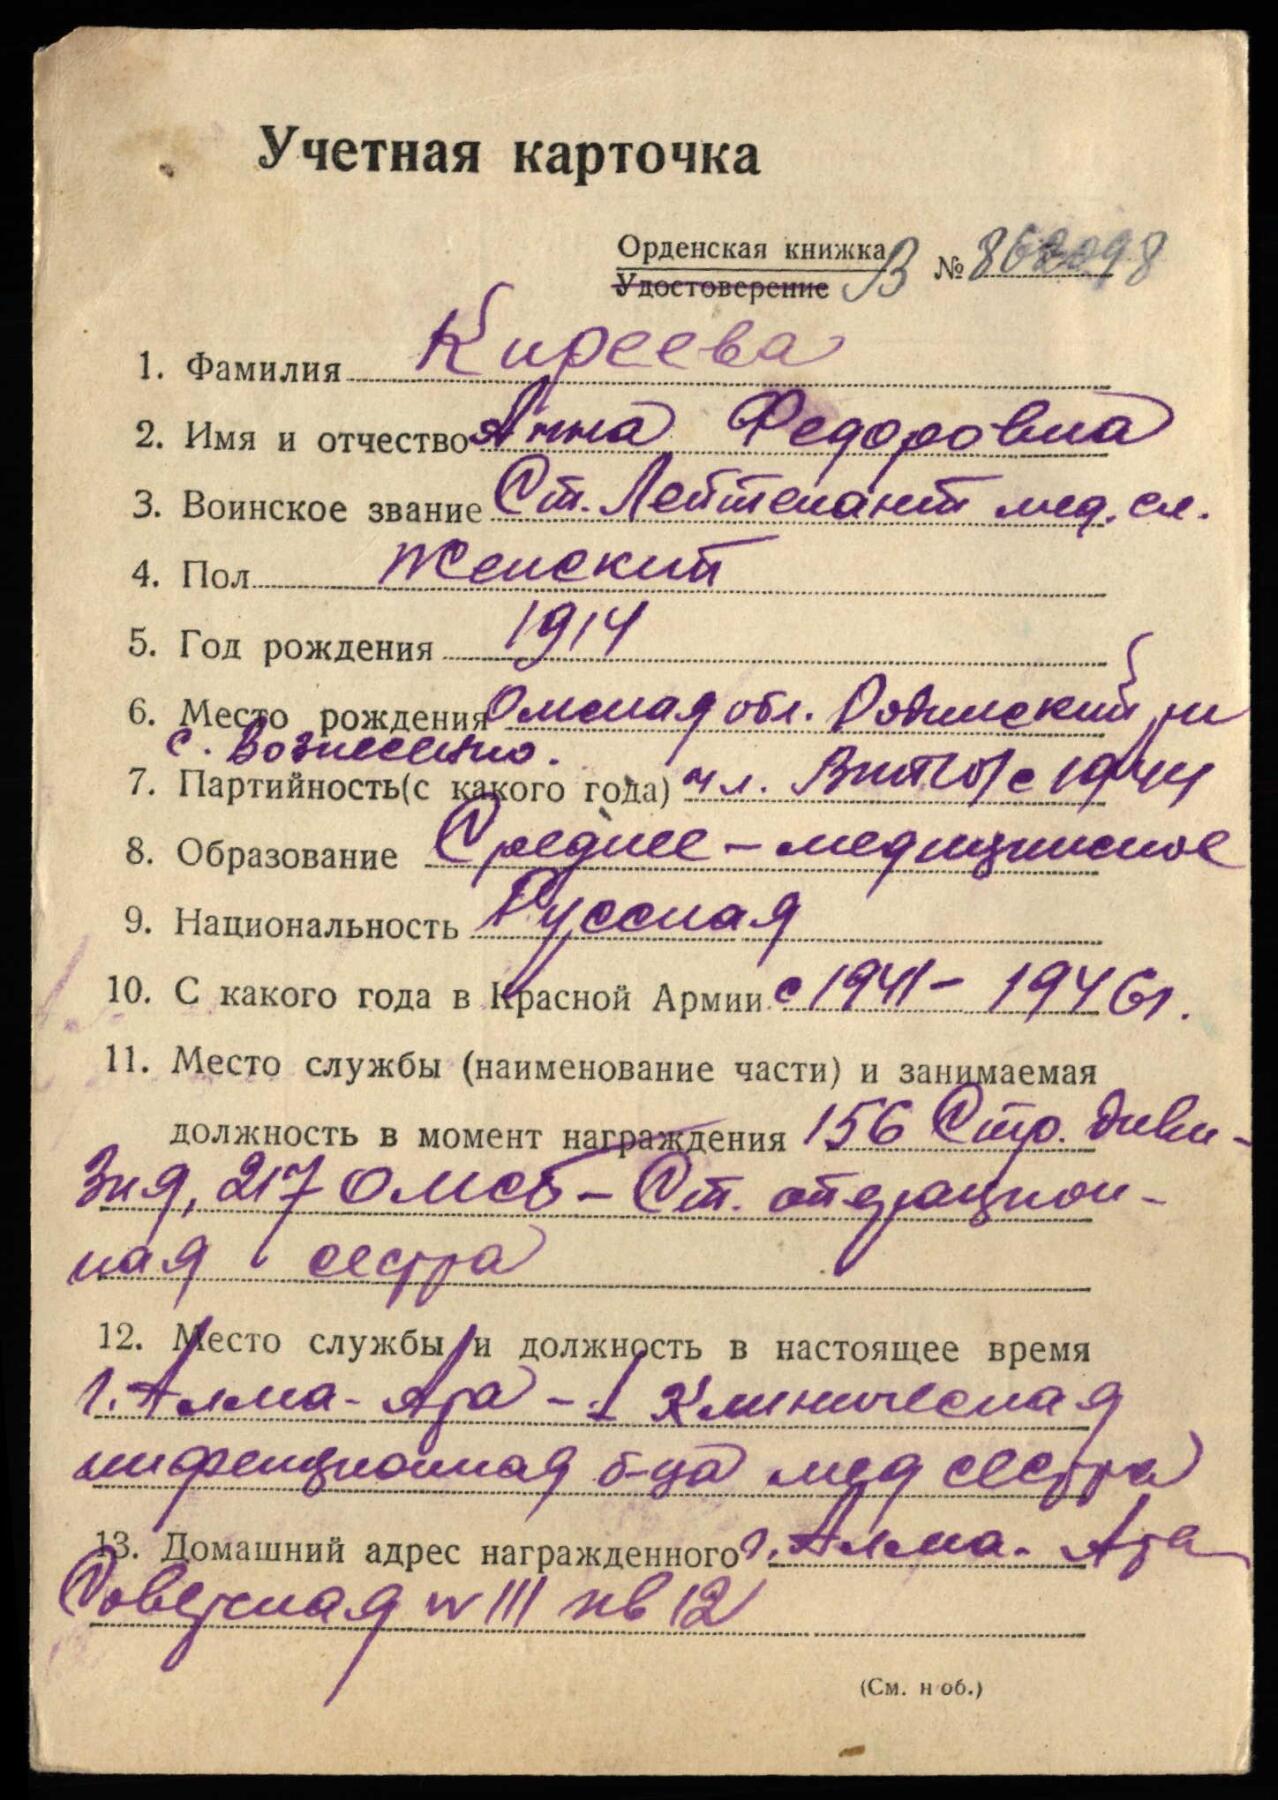 Учетная карточка
Орденская книжка
Удостоверение В № 868298
1. Фамилия Киреева
2. Имя и отчество Анна Федоровна
3. Воинское звание Ст. Лейтенант мед. сл.
4. Пол Женский
5. Год рождения 1914
6. Место рождения Омская обл.
с. Вознесенко.
7. Партийность(с какого года) чл. ВКП(б) с 1944
8. Образование Среднее – медицинское
9. Национальность Русская
10. С какого года в Красной Армии с 1941 – 1946 г.
11. Место службы (наименование части) и занимаемая
должность в момент награждения 156 Стр. диви-
зия, 217 ОМСБ – Ст. операцион-
ная сестра
12. Место службы и должность в настоящее время
г. Алма-Ата – 1 Клиническая
инфекционная б-ца мед сестра
13. Домашний адрес награжденного г. Алма-Ата
Советская № 111 кв 12
(См. н об.)